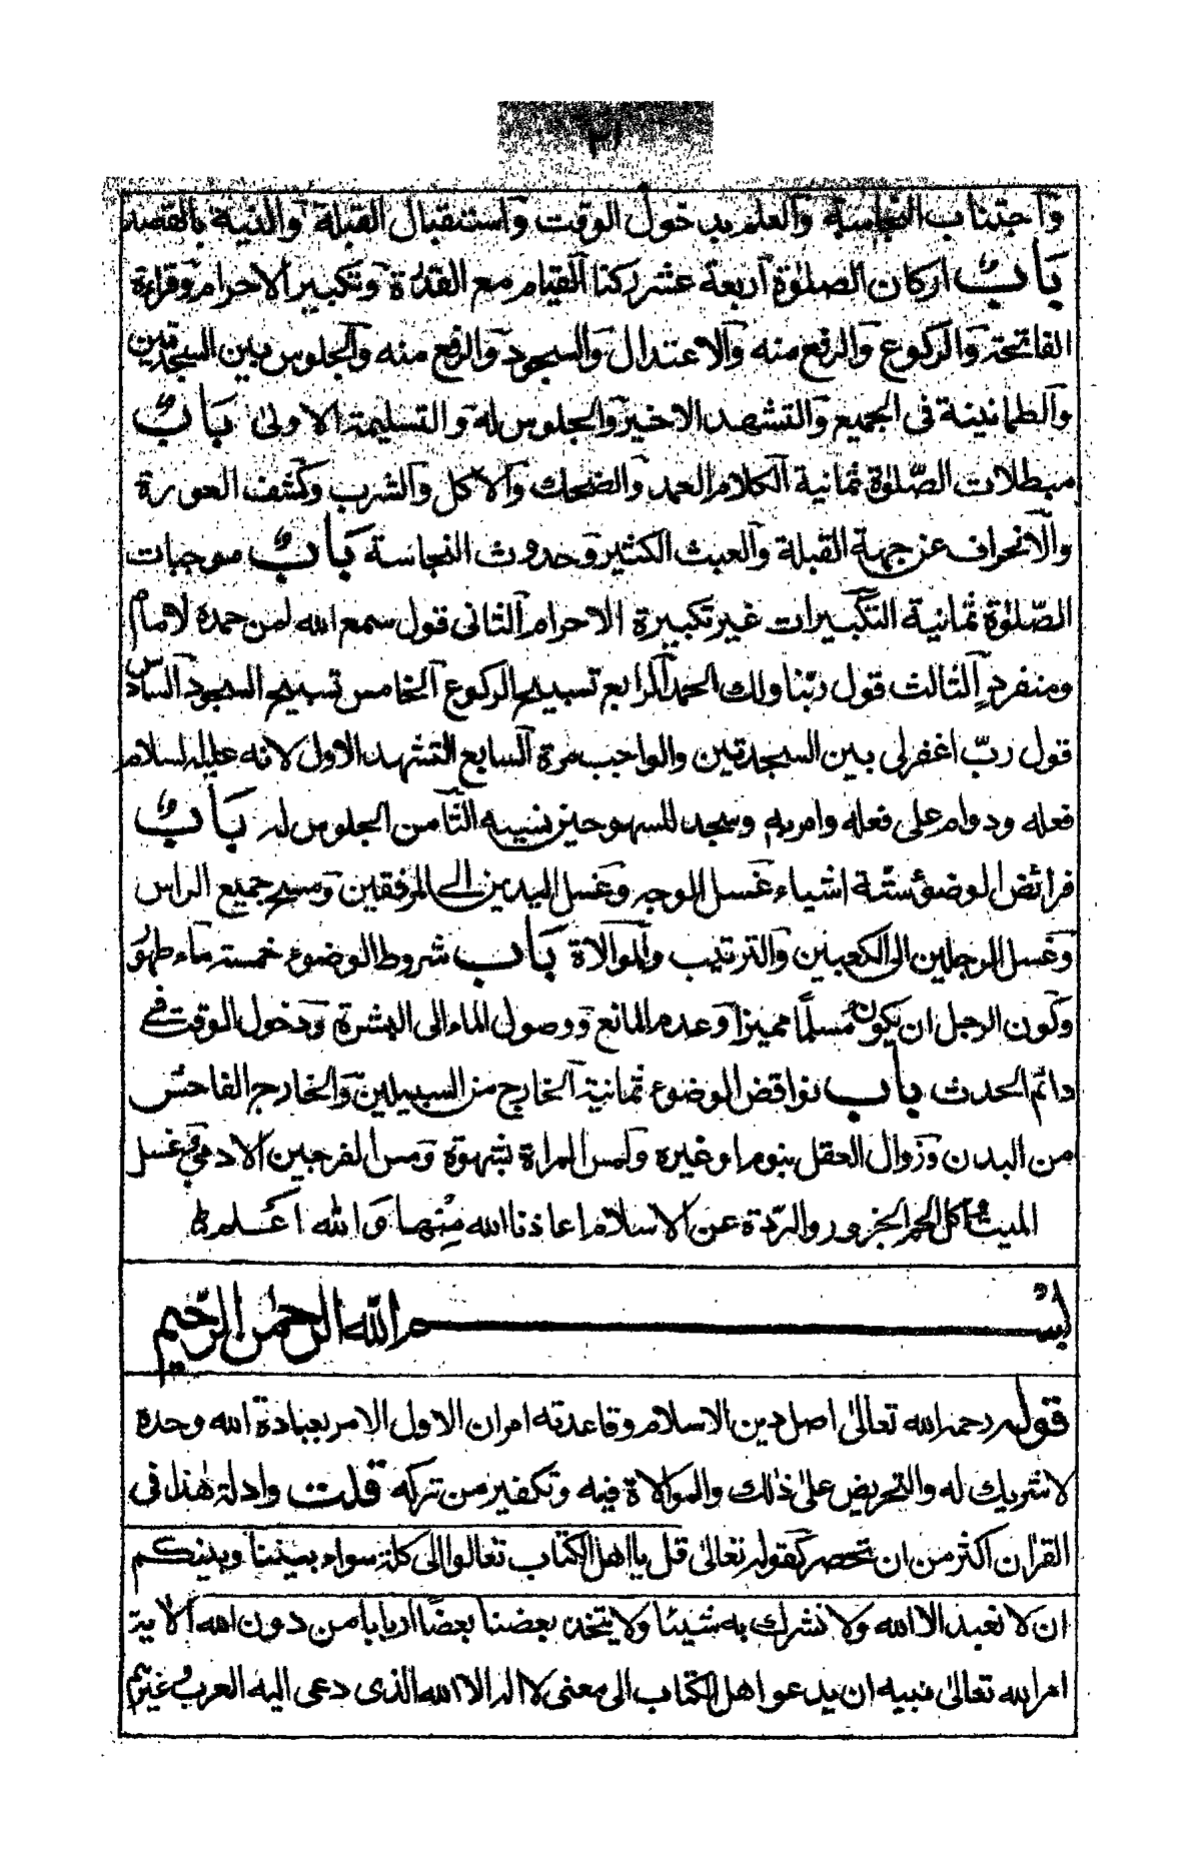 ٢١
واجتناب النجاسة والعلم بدخول الوقت واستقبال القبلة والنية بالقصد
باب اركان الصلوٰة اربعة عشر ركنا القيام مع القدرة وتكبير الاحرام وقراءة
الفاتحة والركوع والرفع منه والاعتدال والسجود والرفع منه والجلوس بين السجدتين
والطمانينة فى الجميع والتشهد الاخير والجلوس له والتسليمة الاولى باب
مبطلات الصّلوٰة ثمانية الكلام العمد والضحك والاكل والشرب وكشف العورة
والانحراف عن جهة القبلة والعبث الكثير وحدوث النجاسة باب موجبات
الصّلوٰة ثمانية التكبيرات غير تكبيرة الاحرام الثانى قول سمع الله لمن حمده لامام
ومنفردٍ الثالث قول ربّنا ولك الحمد الرابع تسبيح الركوع الخامس تسبيح السجود السادس
قول ربّ اغفرلى بين السجدتين والواجب مرة السابع التشهد الاول لانه عليه السلام
فعله ودوام على فعله وامر به وسجد للسهو حين نسيه الثامن الجلوس له باب
فرائض الوضوء ستّة اشياء غسل الوجه وغسل اليدين الى المرفقين ومسح جميع الراس
وغسل الرجلين الى الكعبين والترتيب والموالاة باب شروط الوضوء خمسة ماء طهور
وكون الرجل ان يكون مسلمًا مميزا وعدم المانع ووصول الماء الى البشرة ودخول الوقت فى
دائم الحدث باب نواقض الوضوء ثمانية الخارج من السبيلين والخارج الفاحش
من البدن وزوال العقل بنوم او غيره ولمس المراة بشهوة ومس الفرجين الادمى وغسل
الميت واكل لحم الجزور والردّة عن الاسلام اعاذنا الله مِنْها وَالله اَعْلم
بسم الله الرحمٰن الرّحيم
قوله رحمه الله تعالىٰ اصل دين الاسلام وقاعدته امران الاول الامر بعبادة الله وحده
لاشريك له والتحريض علىٰ ذٰلك والموالاة فيه وتكفير من تركه قلت وادلة هٰذا فى
القراٰن اكثر من ان تحصر كقوله تعالىٰ قل يا اهل الكتاب تعالوا الى كلمة سواء بيننا وبينكم
ان لا نعبد الا الله ولا نشرك به شيئا ولا يتخذ بعضنا بعضًا اربابا من دون الله الاٰية
امر الله تعالىٰ نبيه ان يدعو اهل الكتاب الى معنى لا اله الا الله الذى دعى اليه العرب وغيرهم